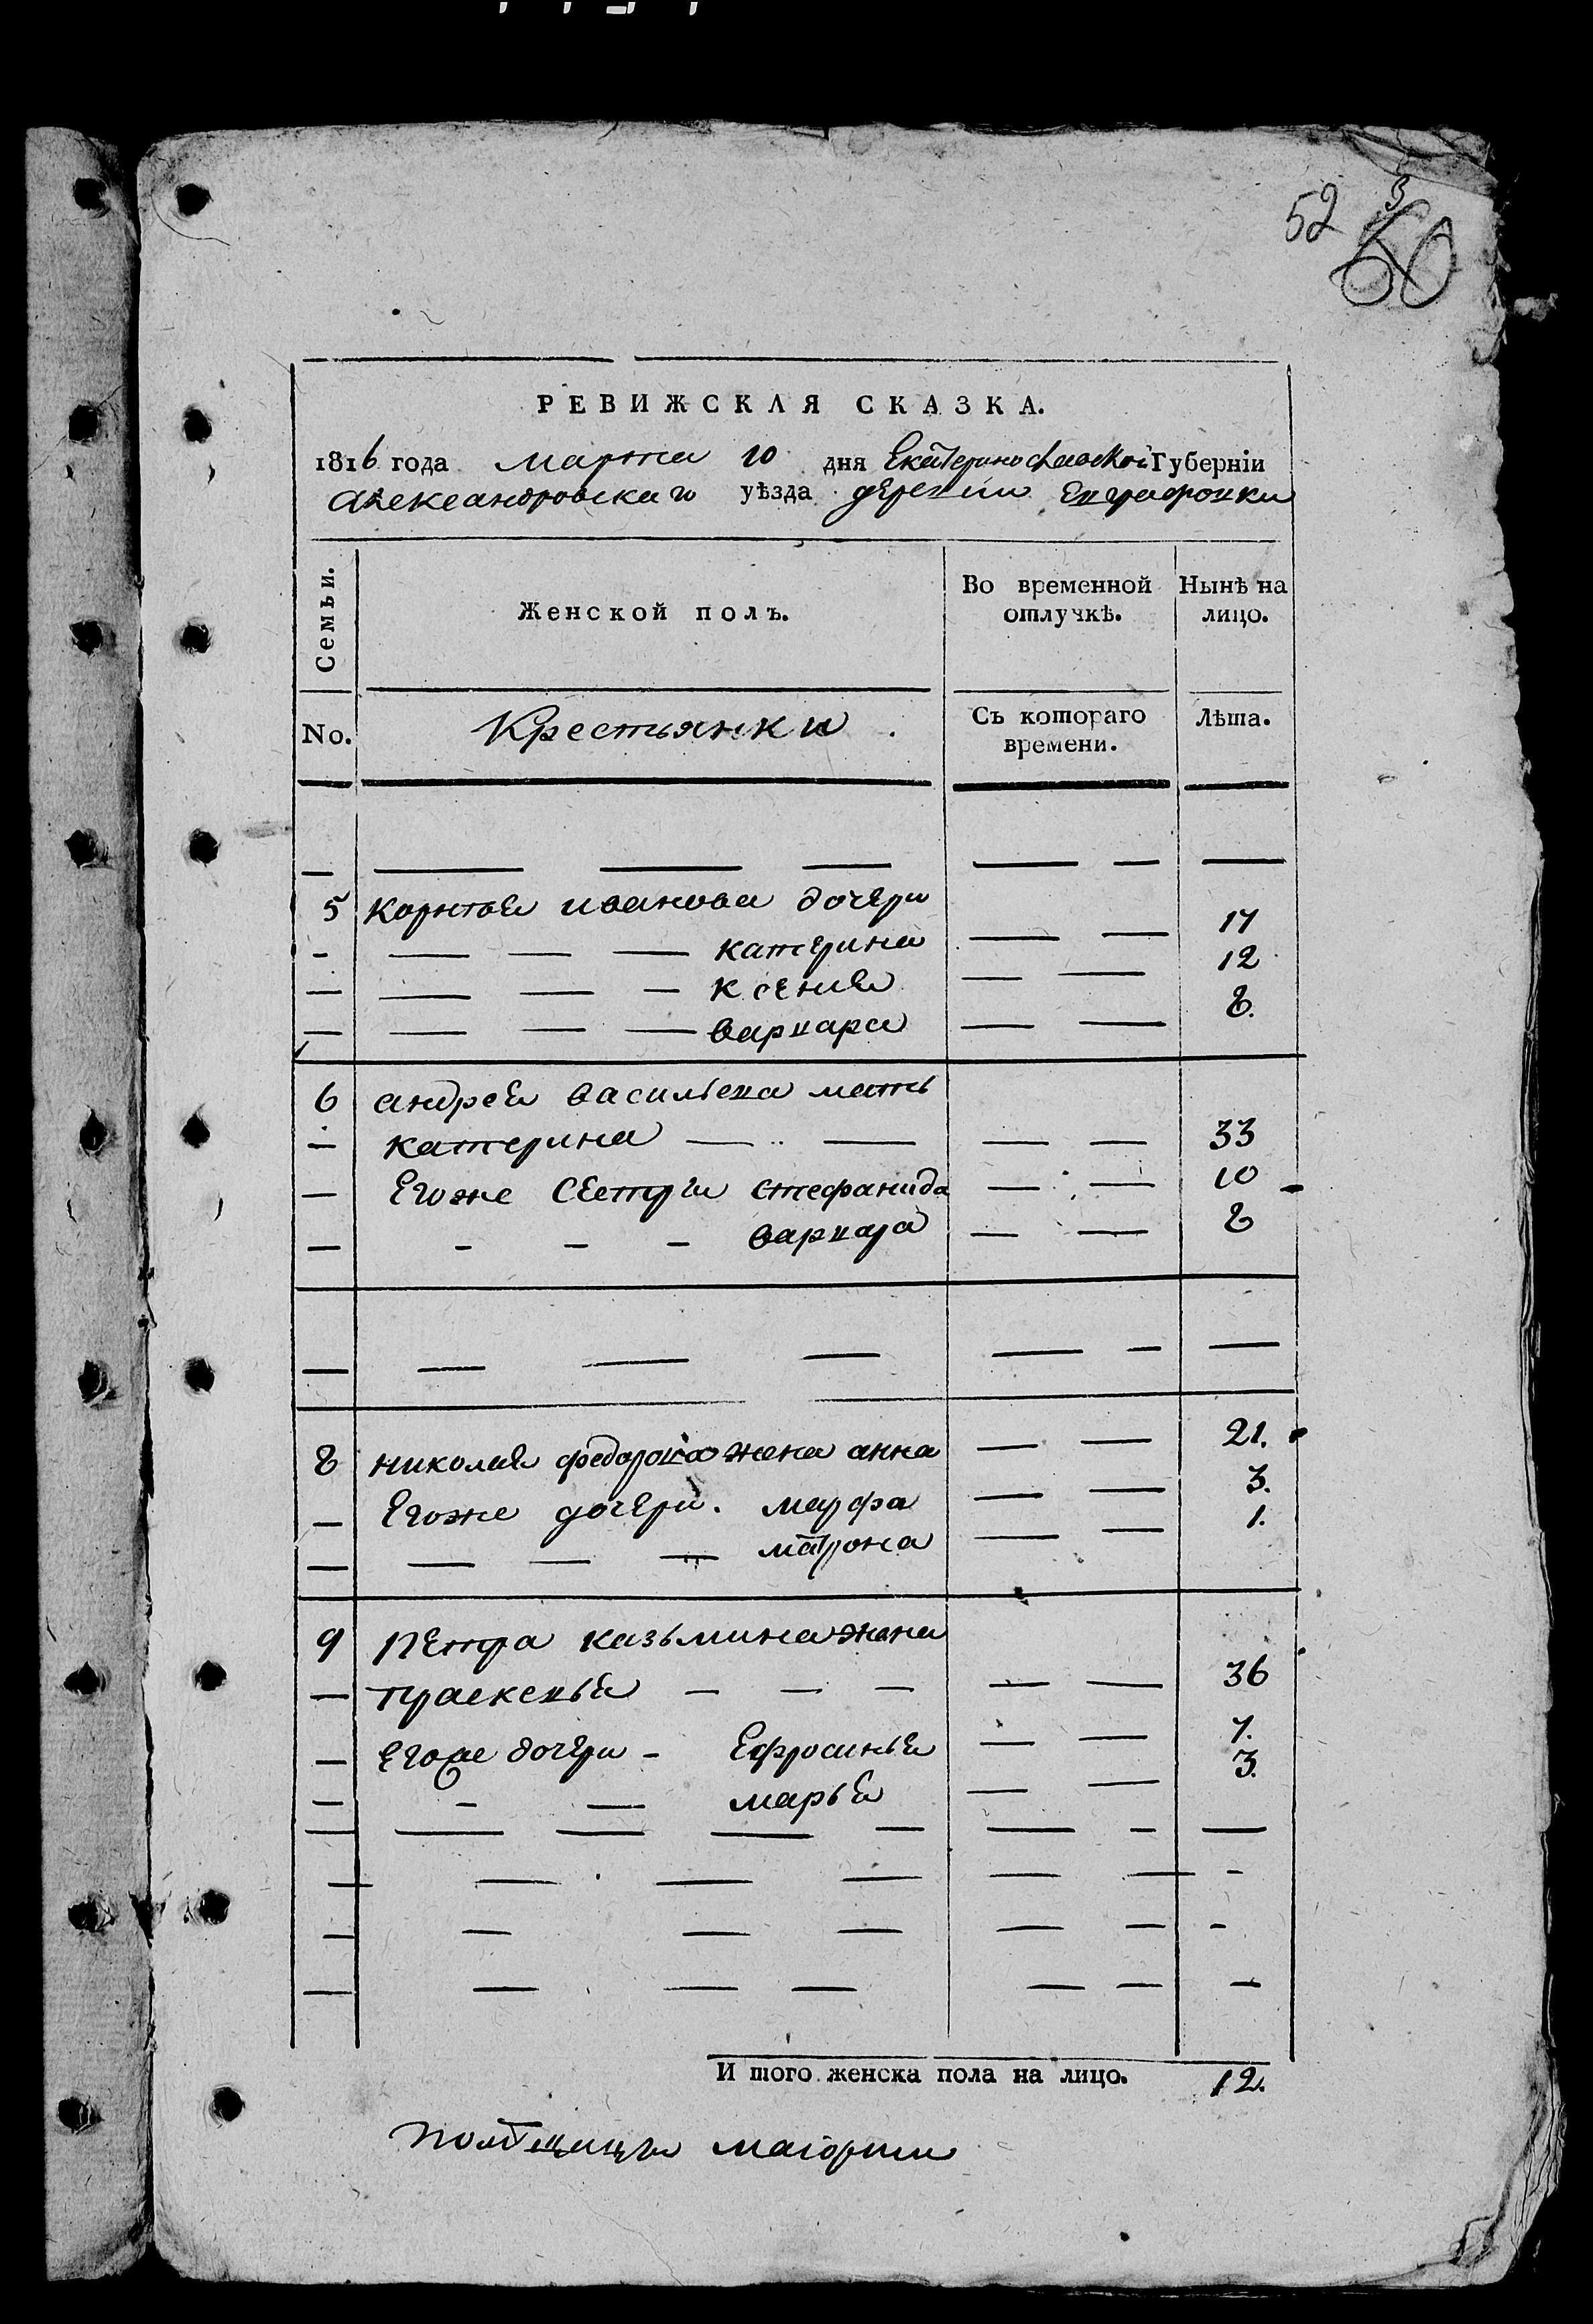 52 3
60
РЕВИЖСКАЯ СКАЗКА.
1816 года марта 10 дня Екатеринославской Губерніи
Александровскаго уѣзда деревни Евграфовки
Семьи. Женской полъ. Во временной отлучкѣ. Нынѣ на лицо.
No. Крестьянки. Съ котораго времени. Лѣта.
5 Корнѣя иванова дочери
катерина 17
ксенія 12
варвара 8.
6 андрея васильева мать
катерина 33
Егоже сестры стефанида 10
варвара 8
8 николая федорова жена анна 21.
Егоже дочери. марфа 3.
матрона 1.
9 Петра казьмина жена
праскевья 36
Егоже дочери - Ефросинья 7.
марья 3.
И того женска пола на лицо. 12.
помещицы маіорши